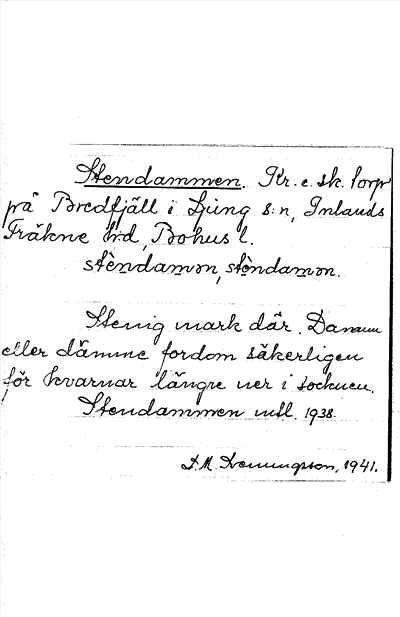 Stendammen. Kr. e. sk. torp
på Bredfjäll i Ljung s:n, Inlands
Fräkne h:d, Bohus l.
stèndamən, stèndamən.
Stenig mark där. Damm
eller dämme fordom säkerligen
för kvarnar längre ner i socknen.
Stendammen mtl. 1938.
1941.